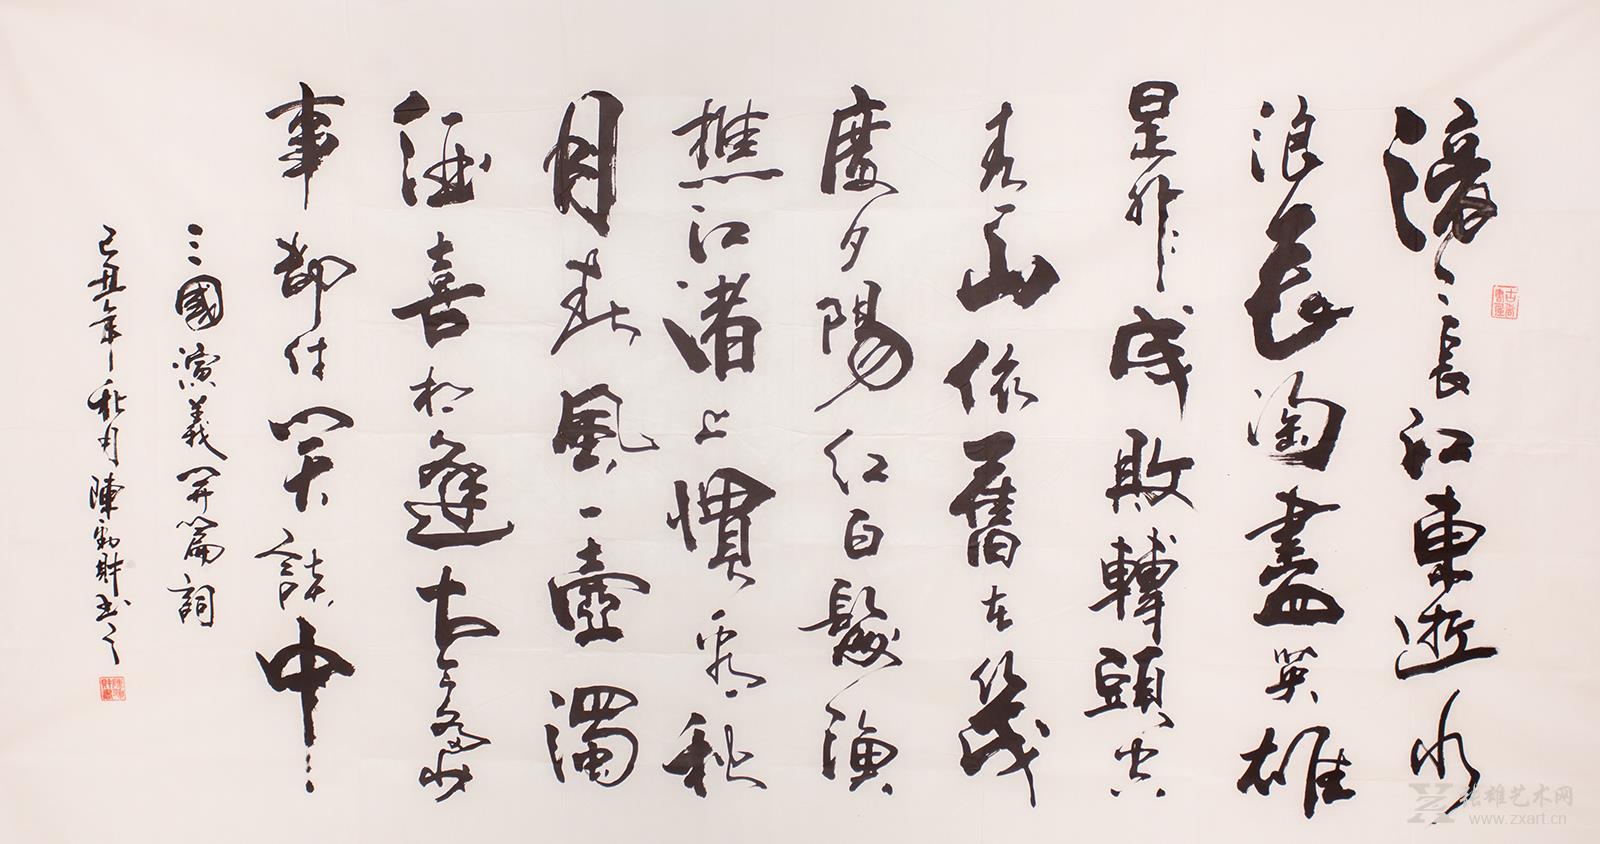 滚〻長江東逝水
浪花淘盡英雄
是非成敗轉頭空
青山依舊在幾
度夕陽紅白髮漁
樵江渚上慣看秋
月春風一壺濁
酒喜相逢古今多少
事都付笑談中
三國演義開篇詞
己丑年秋月陳財書之
张雄艺术网
www.zxart.cn